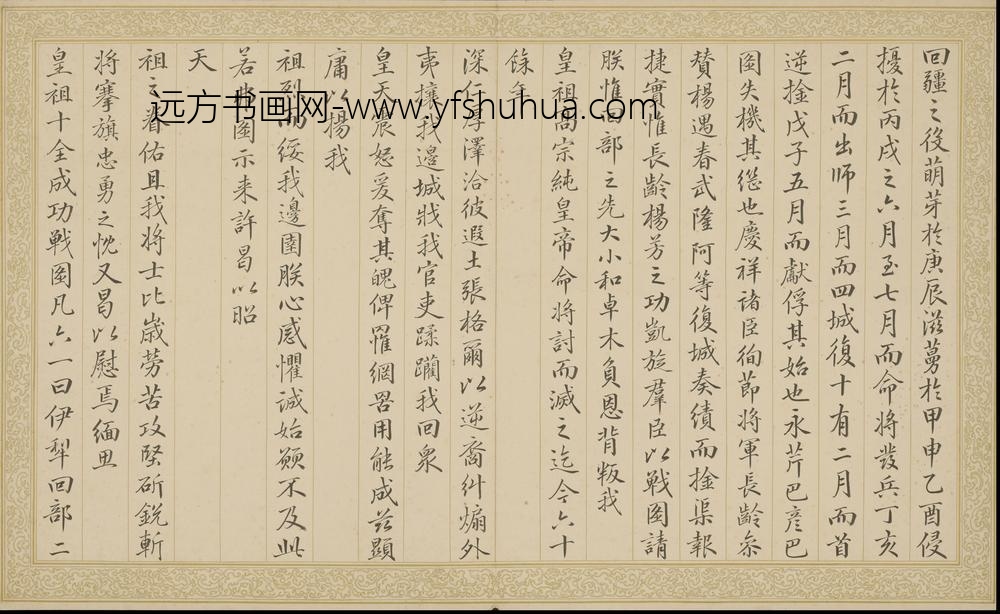 回疆之役萌芽於庚辰滋蔓於甲申乙酉侵
擾於丙戌之六月至七月而命將發兵丁亥
二月而出師三月而四城復十有二月而首
逆擒戊子五月而獻俘其始也永芹巴彥巴
圖失機其繼也慶祥諸臣徇節將軍長齡叅
贊楊遇春武隆阿等復城奏績而擒渠報
捷實惟長齡楊芳之功凱旋羣臣以戰圖請
朕惟回部之先大小和卓木負恩背叛我
皇祖高宗純皇帝命將討而滅之迄今六十
餘年
深仁厚澤洽彼遐土張格爾以逆裔糾煽外
夷攘我邊城戕我官吏蹂躪我回眾
皇天震怒爰奪其魄俾罹網罟用能成茲顯
庸以揚我
祖烈而綏我邊圉朕心感懼誠始願不及此
若 圖示来許曷以昭
天
祖之眷佑且我將士比歲勞苦攻堅斫銳斬
將搴旗忠勇之忱又曷以慰焉緬思
皇祖十全成功戰圖凡六一曰伊犁回部二
远方书画网-www.yfshuhua.com